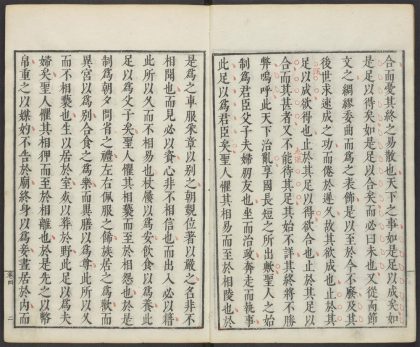 合而憂其終之易散也天下之事如是足以成矣如
是足以得矣如是足以合矣而必曰未也又從而節
文之綢繆委曲而爲之表飾是以至於今不廢及其
後世求速成之功而倦於遲久故其欲成也止於其
足以成欲得也止於其足以得欲合也止於其足以
合而其甚者又不能待其足其始不詳其終將不勝
弊嗚呼此天下治亂享國長短之所出歟聖人之始
制爲君臣父子夫婦朋友也坐而治政奔走而執事
此足以爲君臣矣聖人懼其相易而至於相陵也於
是爲之車服采章以別之朝覲位著以嚴之名非不
相聞也而見必以贄心非不相信也而出入必以籍
此所以久而不相易也杖屨以爲安飲食以爲養此
足以爲父子矣聖人懼其相褻而至於相怨也於是
制爲朝夕問省之禮左右佩服之飾族居之爲歡而
異宮以爲別合食之爲樂而異膳以爲尊此所以久
而不相褻也生以居於室死以葬於野此足以爲夫
婦矣聖人懼其相狎而至於相離也於是先之以幣
帛重之以媒妁不告於廟終身以爲妾晝居於內而
卷四 二